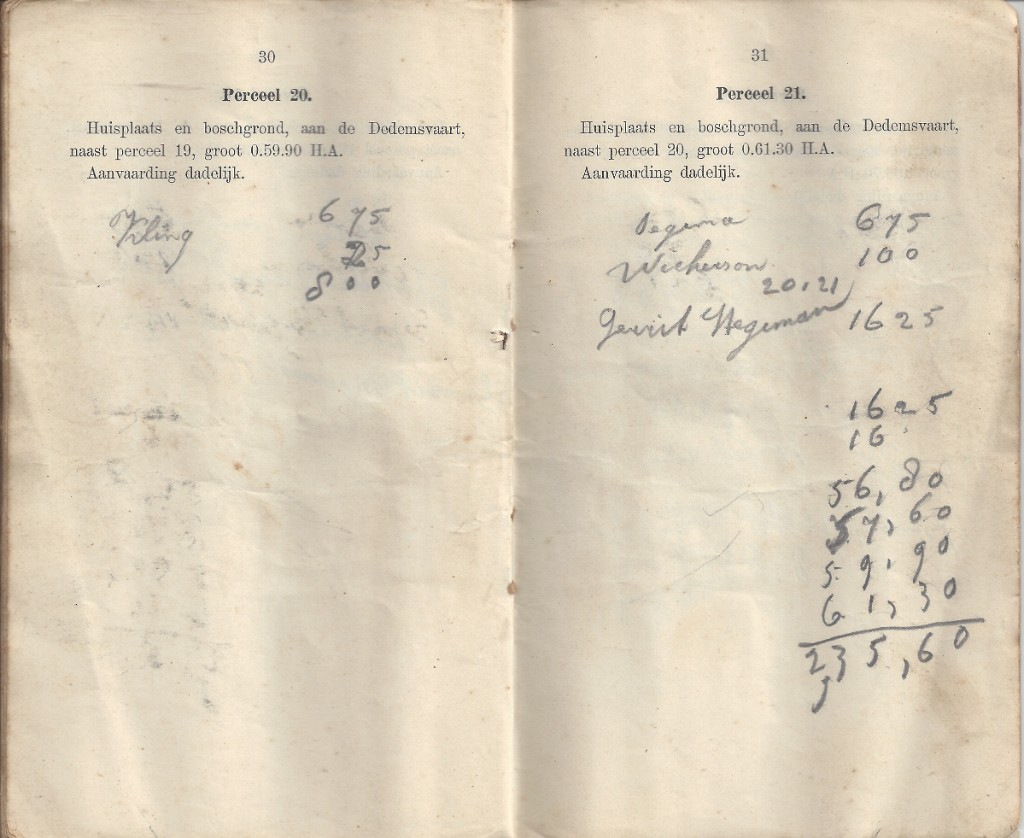 30
Perceel 20.
Huisplaats en boschgrond, aan de Dedemsvaart,
naast perceel 19, groot 0.59.90 H.A.
Aanvaarding dadelijk.
Kling 675
25
800
31
Perceel 21.
Huisplaats en boschgrond, aan de Dedemsvaart,
naast perceel 20, groot 0.61.30 H.A.
Aanvaarding dadelijk.
675
Wicherson 100
20.21
Gerrit Stegeman 1625
1625
16
56,80
57,60
59,90
61,30
235,60